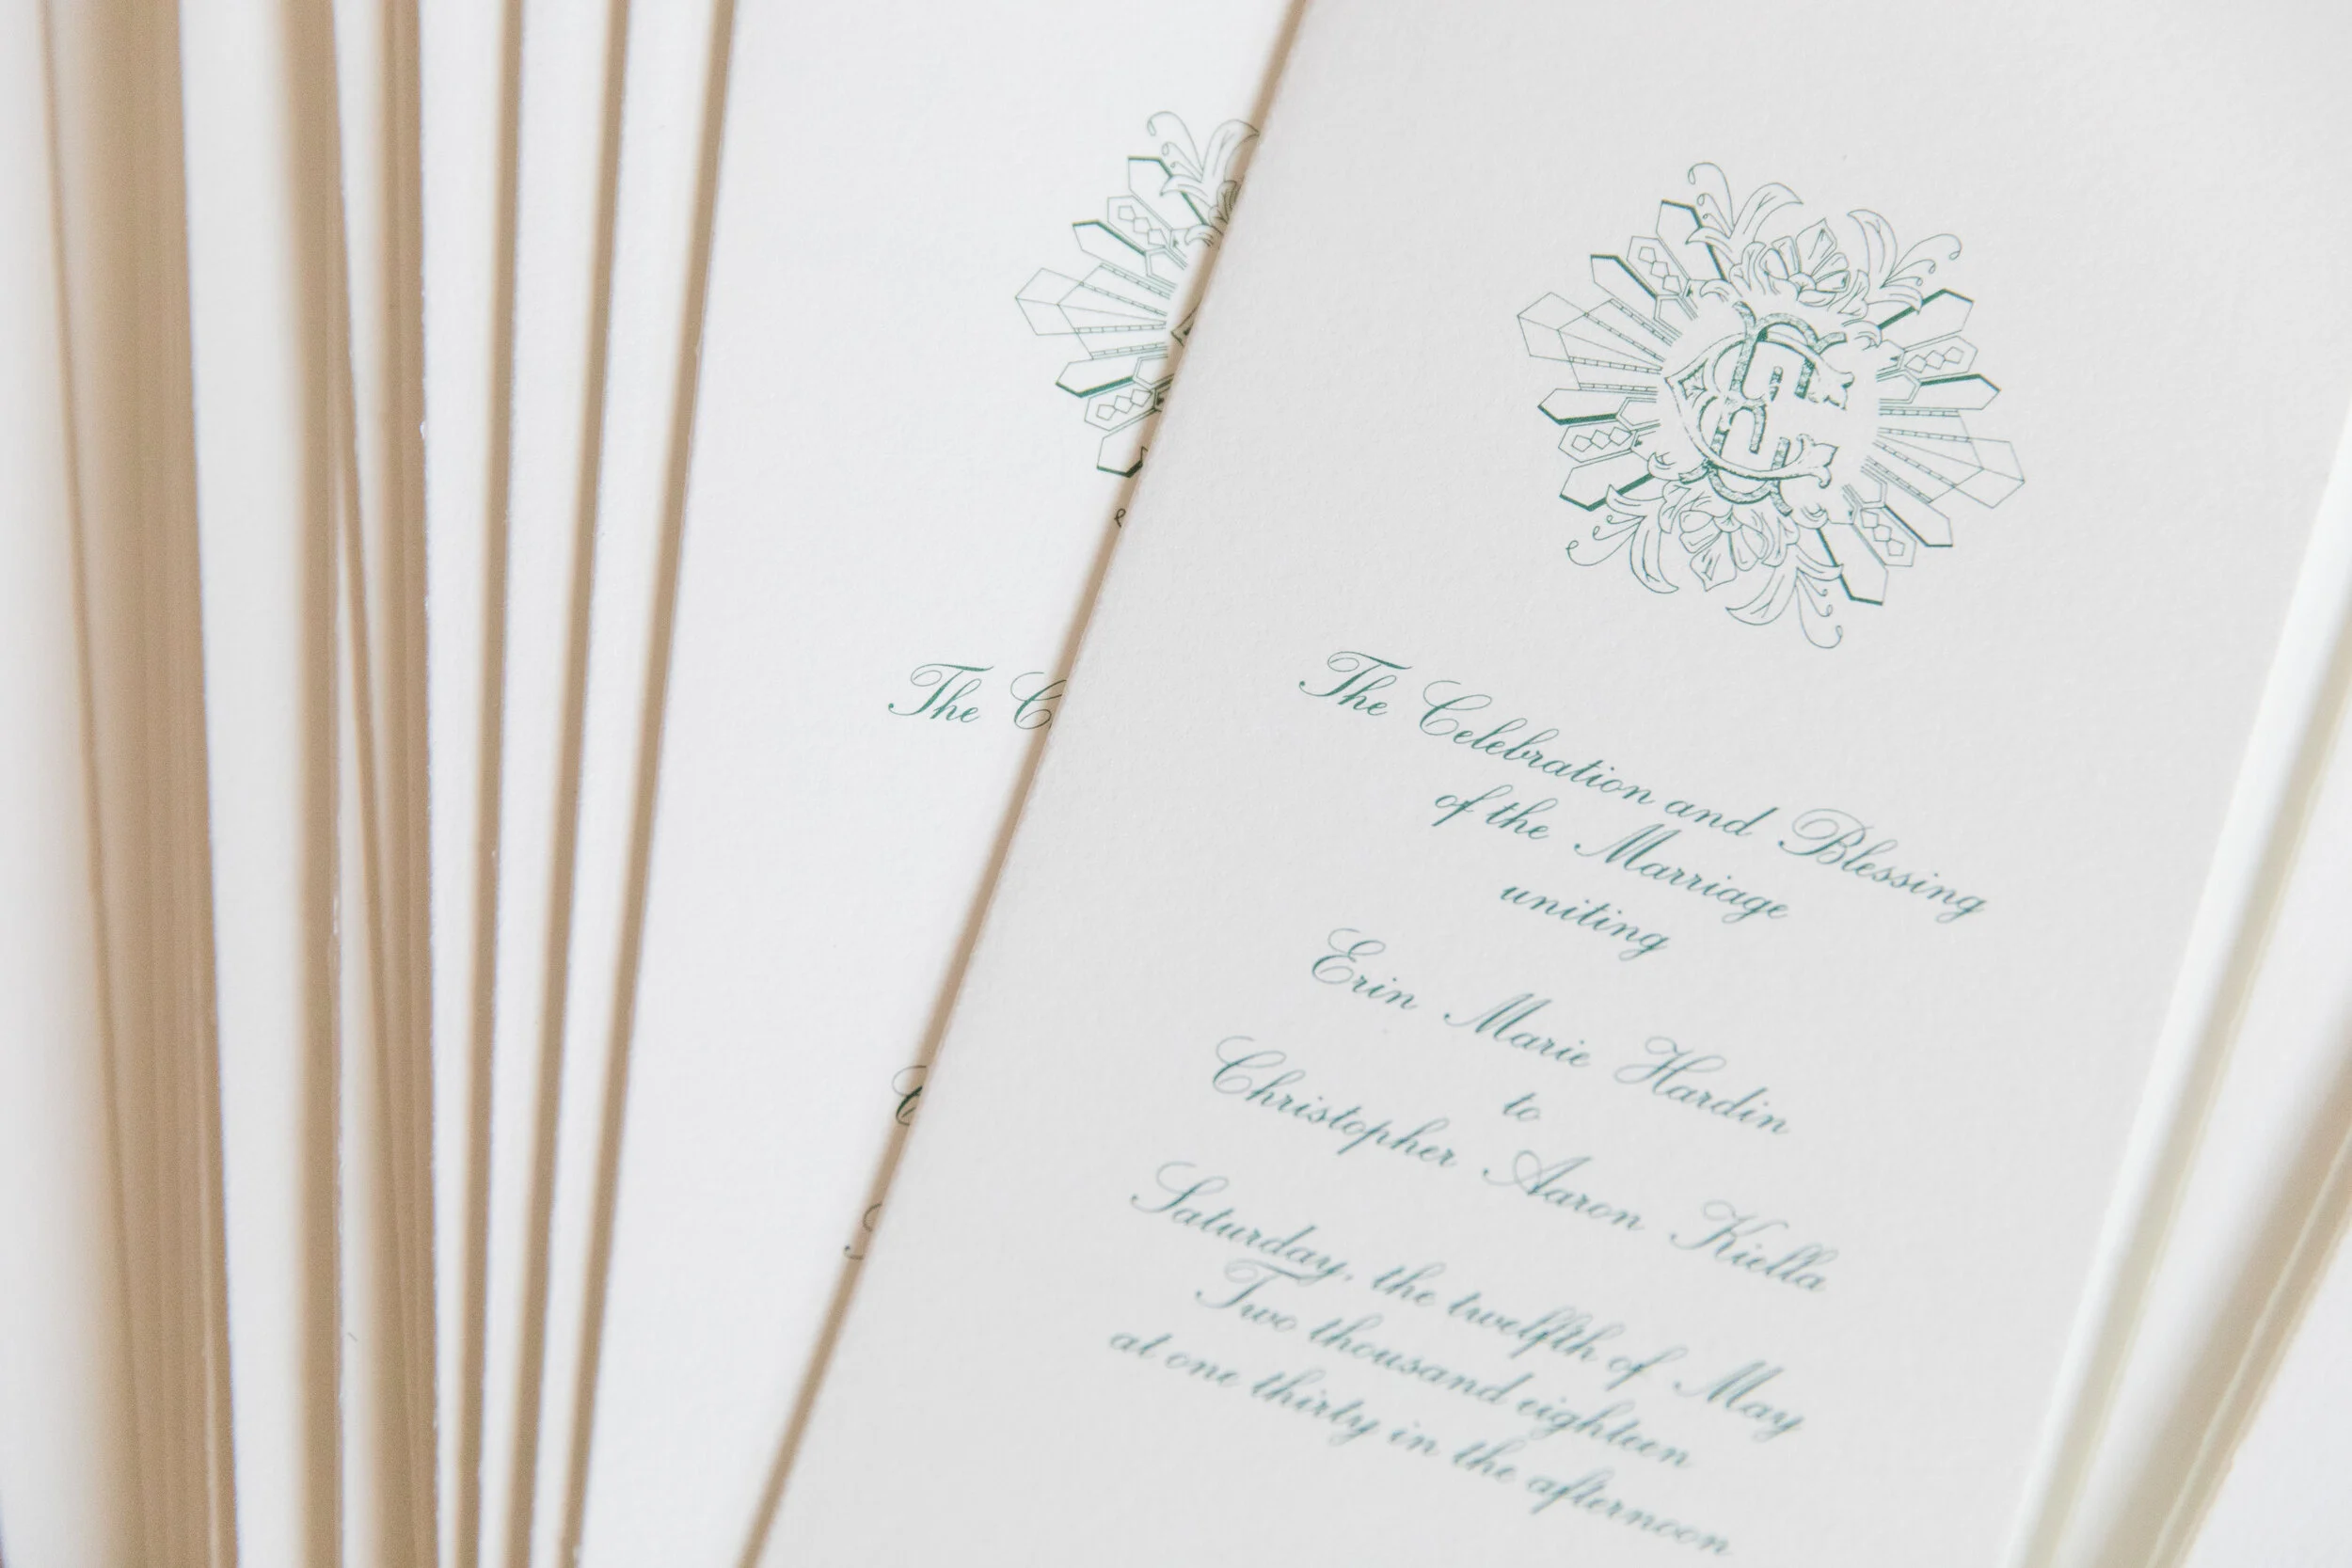 The C
The Celebration and Blessing
of the Marriage
uniting
Erin Marie Hardin
to
Christopher Aaron Kiella
Saturday, the twelfth of May
Two thousand eighteen
at one thirty in the afternoon